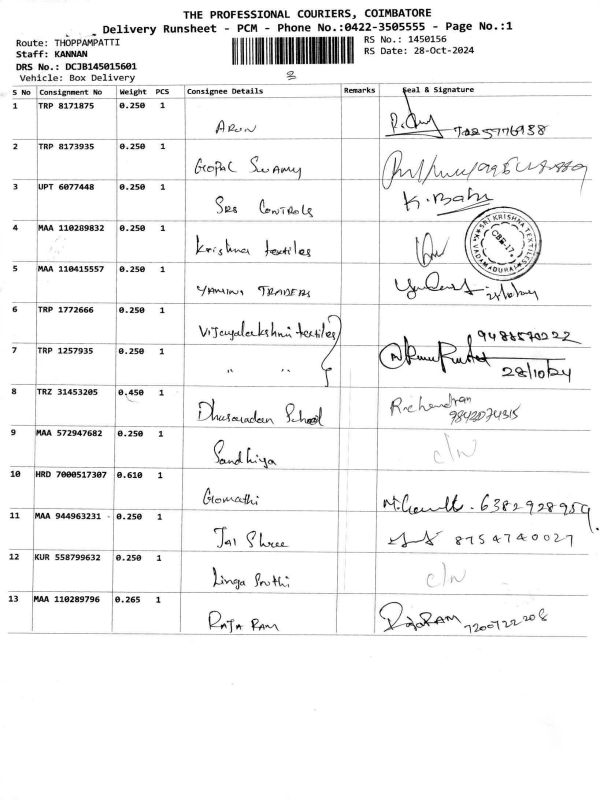 THE PROFESSIONAL COURIERS, COIMBATORE
Delivery Runsheet - PCM - Phone No.:0422-3505555 - Page No.:1
Route: THOPPAMPATTI RS No.: 1450156
Staff: KANNAN RS Date: 28-Oct-2024
DRS No.: DCJB145015601
Vehicle: Box Delivery
S No Consignment No Weight PCS Consignee Details Remarks Seal & Signature
1 TRP 8171875 0.250 1 ARUN
2 TRP 8173935 0.250 1 Gopal Swamy
3 UPT 6077448 0.250 1 SRS CONTROLS K. Babu
4 MAA 110289832 0.250 1 Krishna textiles SRI KRISHNA TEXTILES VADAMADURAI CBE-17
5 MAA 110415557 0.250 1 YAMINI TRADERS 28/10/24
6 TRP 1772666 0.250 1 Vijayalakshmi textiles 9488570222
7 TRP 1257935 0.250 1 " " 28/10/24
8 TRZ 31453205 0.450 1 School 9842074315
9 MAA 572947682 0.250 1 Sandhiya c/n
10 HRD 7000517307 0.610 1 Gomathi 6382928959
11 MAA 944963231 0.250 1 Jai Shree 8754740027
12 KUR 558799632 0.250 1 Linga c/n
13 MAA 110289796 0.265 1 RAJA RAM RAJARAM 7200722208